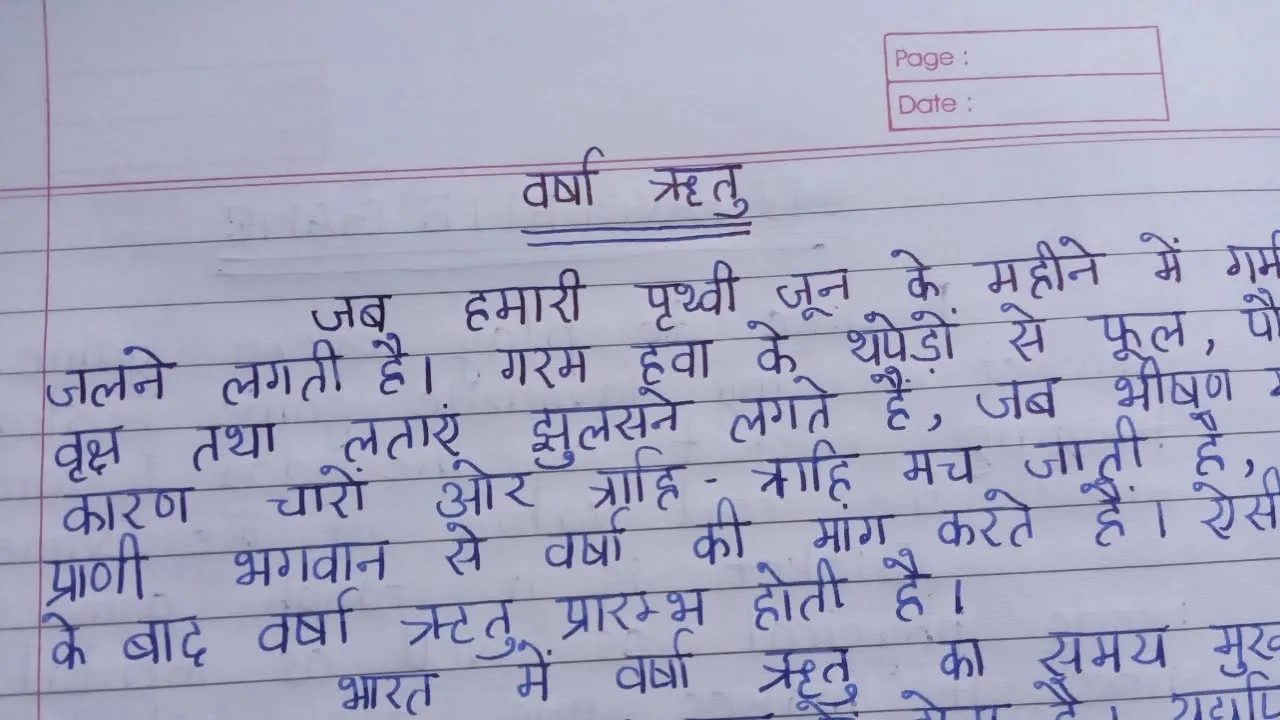 Page :
Date :
वर्षा ऋतु
जब हमारी पृथ्वी जून के महीने में
जलने लगती है। गरम हवा के थपेड़ों से फूल,
वृक्ष तथा लताएं झुलसने लगते हैं, जब भीषण
कारण चारों ओर त्राहि - त्राहि मच जाती है,
प्राणी भगवान से वर्षा की मांग करते हैं। ऐसी
के बाद वर्षा ऋतु प्रारम्भ होती है।
भारत में वर्षा ऋतु का समय